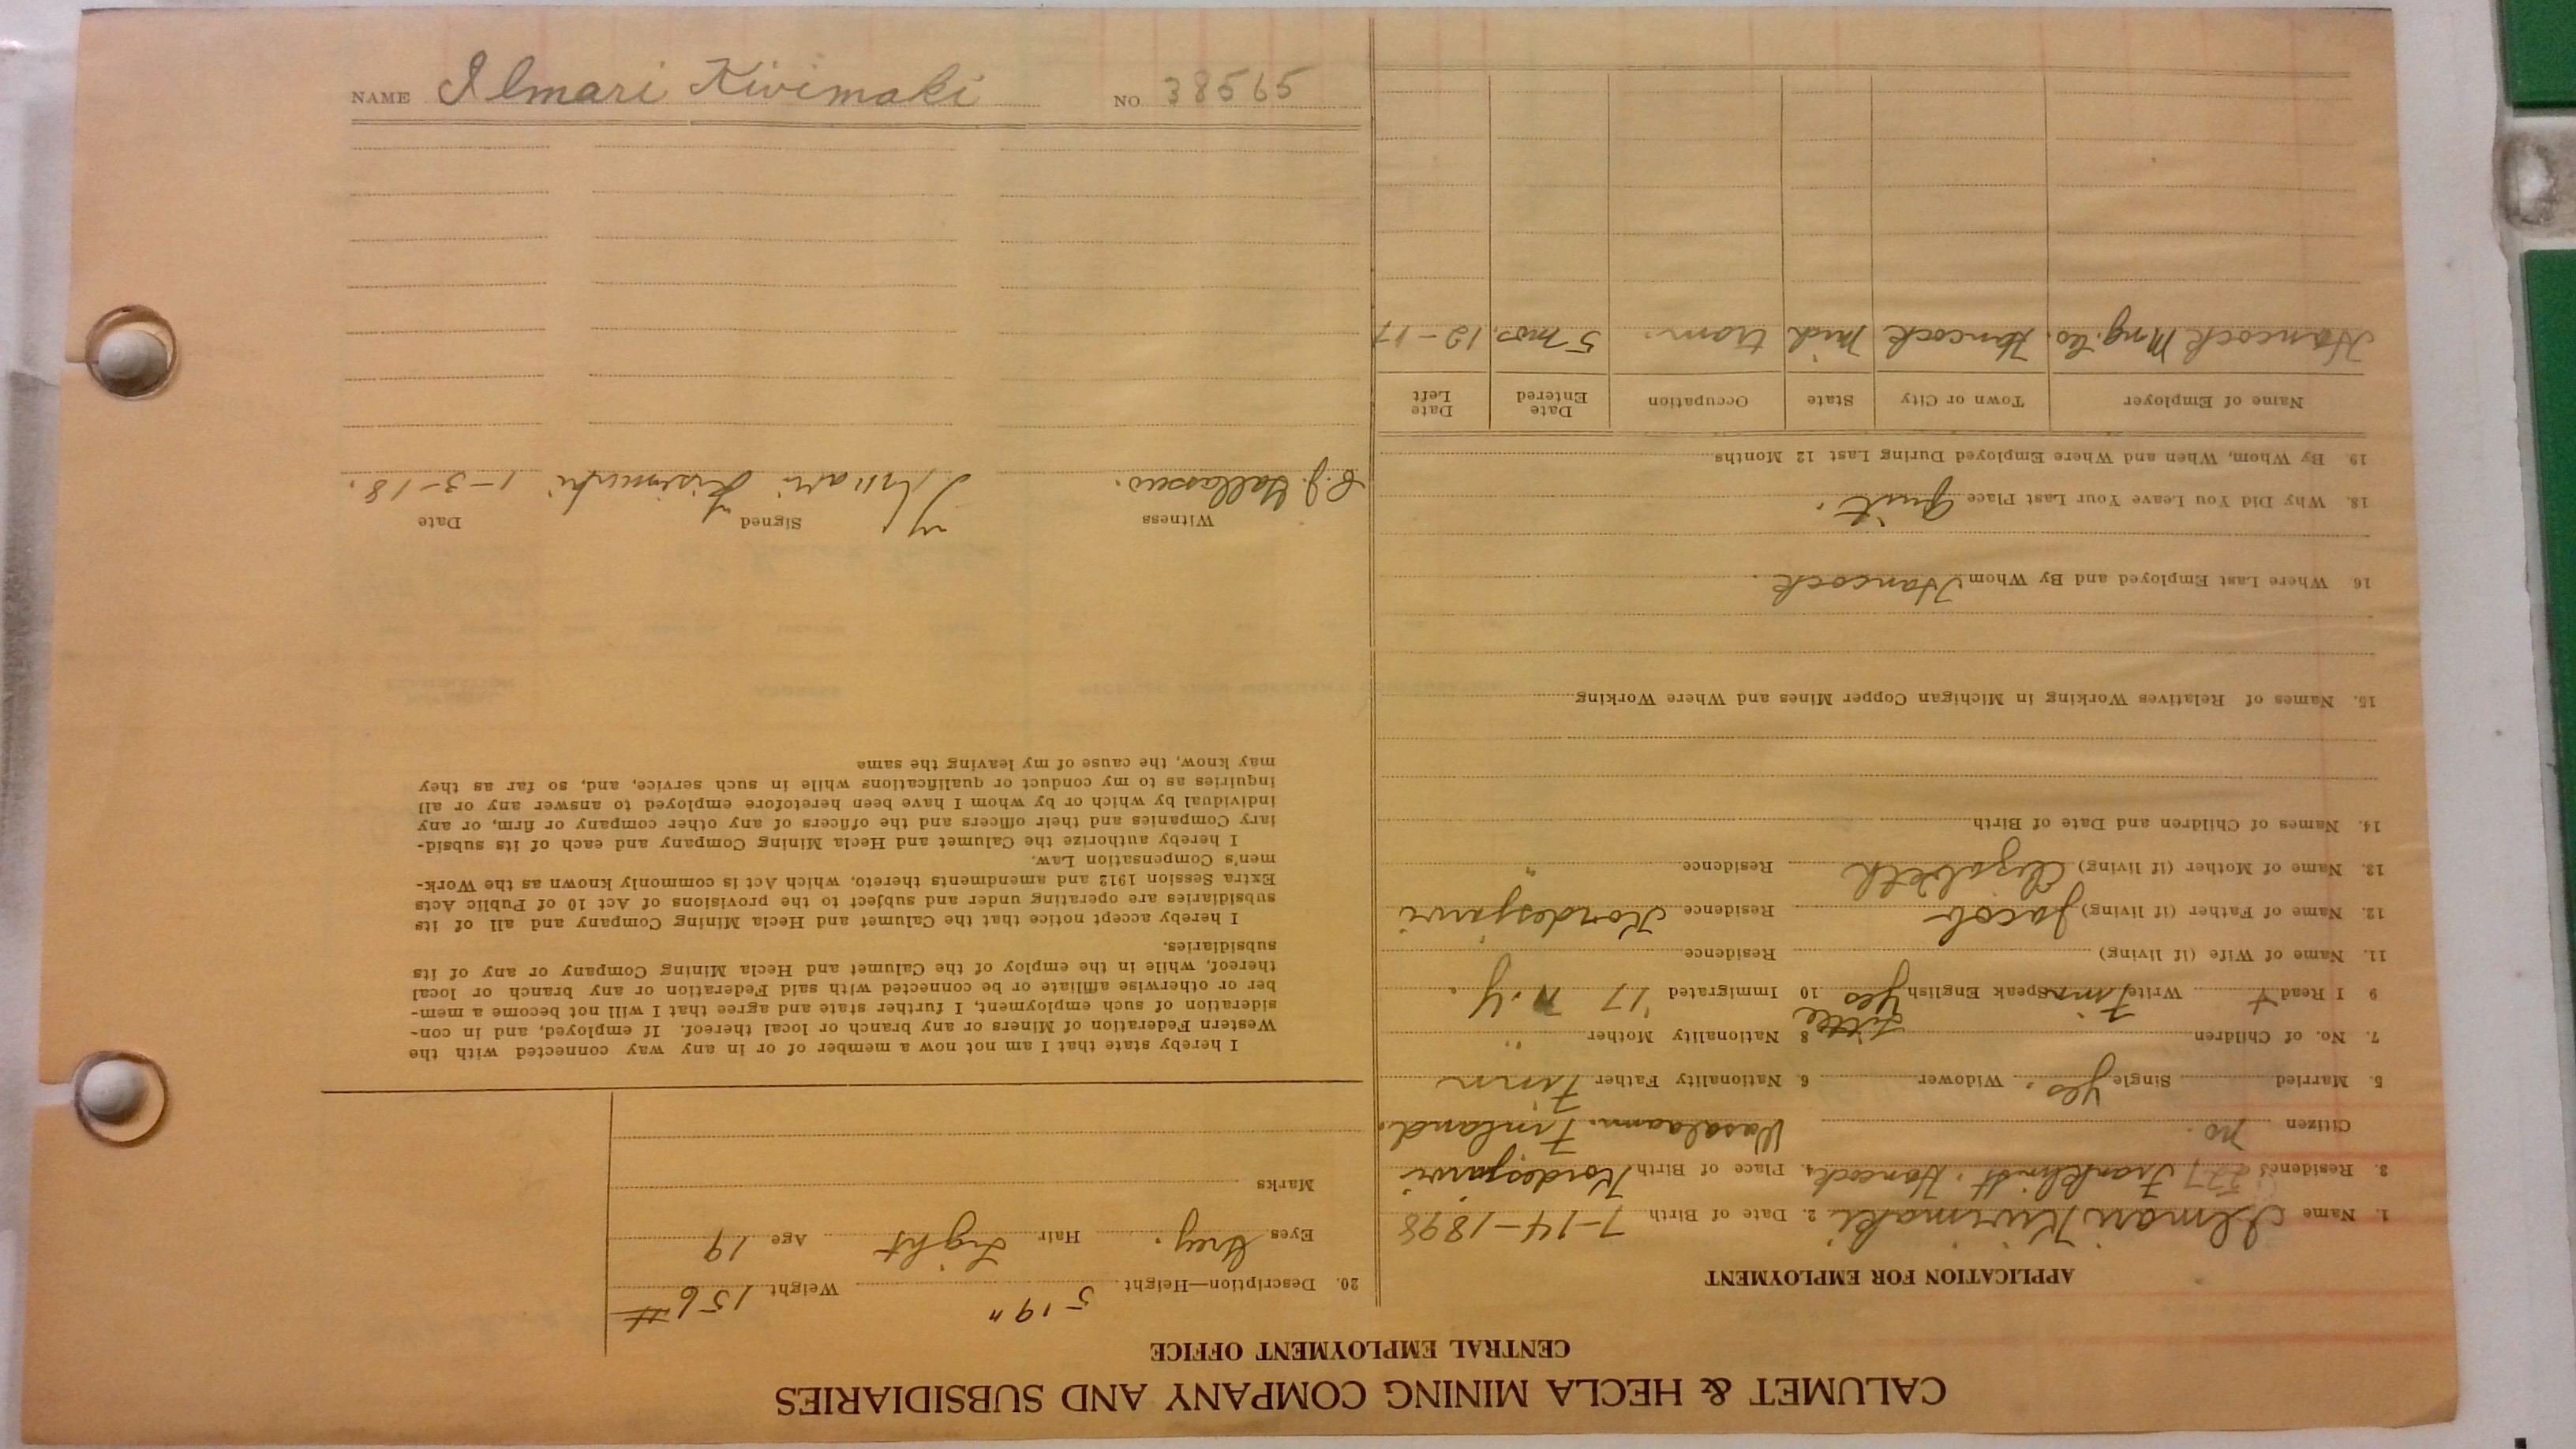 CALUMET & HECLA MINING COMPANY AND SUBSIDIARIES
CENTRAL EMPLOYMENT OFFICE
APPLICATION FOR EMPLOYMENT
1. Name Ilmari Kivimaki 2. Date of Birth 7-14-1898
3. Residence 527 Franklin St. Hancock 4. Place of Birth Kordesjarvi
Citizen no. Wasalaani. Finland.
5. Married Single yes. Widower 6. Nationality Father Finn
7. No. of Children 8 Nationality Mother "
9 I Read + Write Finn Speak English Little yes 10 Immigrated '17 N.Y.
11. Name of Wife (if living) Residence
12. Name of Father (if living) Jacob Residence Kordesjarvi
13. Name of Mother (if living) Elizabeth Residence "
14. Names of Children and Date of Birth
15. Names of Relatives Working in Michigan Copper Mines and Where Working
16 Where Last Employed and By Whom Hancock.
18. Why Did You Leave Your Last Place Quit.
19. By Whom, When and Where Employed During Last 12 Months
Name of Employer Town or City State Occupation Date Entered Date Left
Hancock Mng. Co. Hancock Mich tram. 5 mos. 12-17
20. Description—Height 5'9" Weight 156 #
Eyes Grey. Hair Light Age 19
Marks
I hereby state that I am not now a member of or in any way connected with the
Western Federation of Miners or any branch or local thereof. If employed, and in con-
sideration of such employment, I further state and agree that I will not become a mem-
ber or otherwise affiliate or be connected with said Federation or any branch or local
thereof, while in the employ of the Calumet and Hecla Mining Company or any of its
subsidiaries.
I hereby accept notice that the Calumet and Hecla Mining Company and all of its
subsidiaries are operating under and subject to the provisions of Act 10 of Public Acts
Extra Session 1912 and amendments thereto, which Act is commonly known as the Work-
men's Compensation Law.
I hereby authorize the Calumet and Hecla Mining Company and each of its subsid-
iary Companies and their officers and the officers of any other company or firm, or any
individual by which or by whom I have been heretofore employed to answer any or all
inquiries as to my conduct or qualifications while in such service, and, so far as they
may know, the cause of my leaving the same
Witness Signed Date
Ilmari 1-3-18.
NAME Ilmari Kivimaki NO 38565